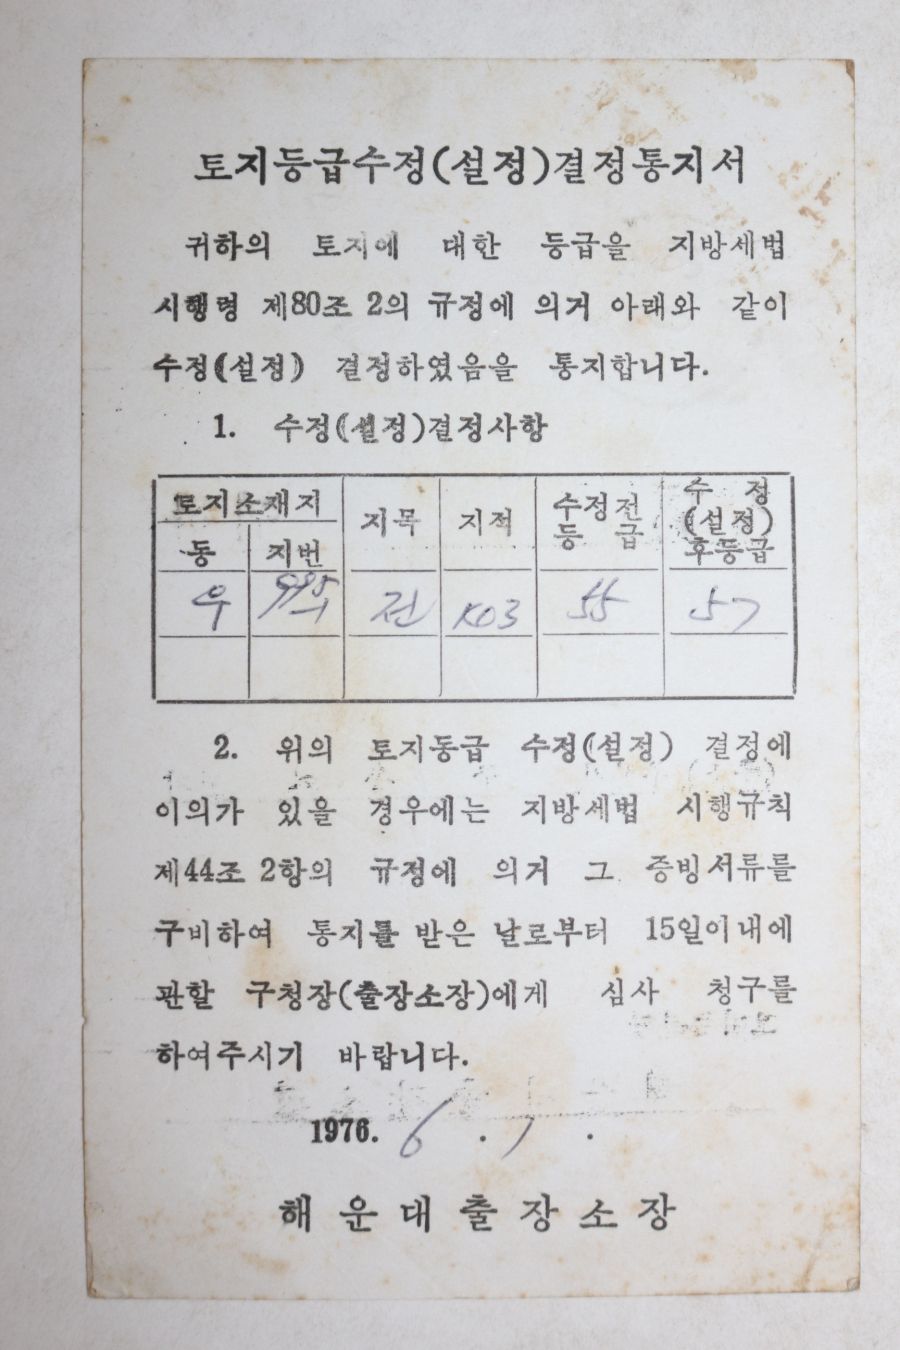 토지등급수정(설정)결정통지서
귀하의 토지에 대한 등급을 지방세법
시행령 제80조 2의 규정에 의거 아래와 같이
수정(설정) 결정하였음을 통지합니다.
1. 수정(설정)결정사항
토지소재지 지목 지적 수정전등급 수정(설정)후등급
동 지번
우 995 전 103 55 57
2. 위의 토지등급 수정(설정) 결정에
이의가 있을 경우에는 지방세법 시행규칙
제44조 2항의 규정에 의거 그 증빙서류를
구비하여 통지를 받은 날로부터 15일이내에
관할 구청장(출장소장)에게 심사 청구를
하여주시기 바랍니다.
1976. 6 . 1 .
해운대출장소장